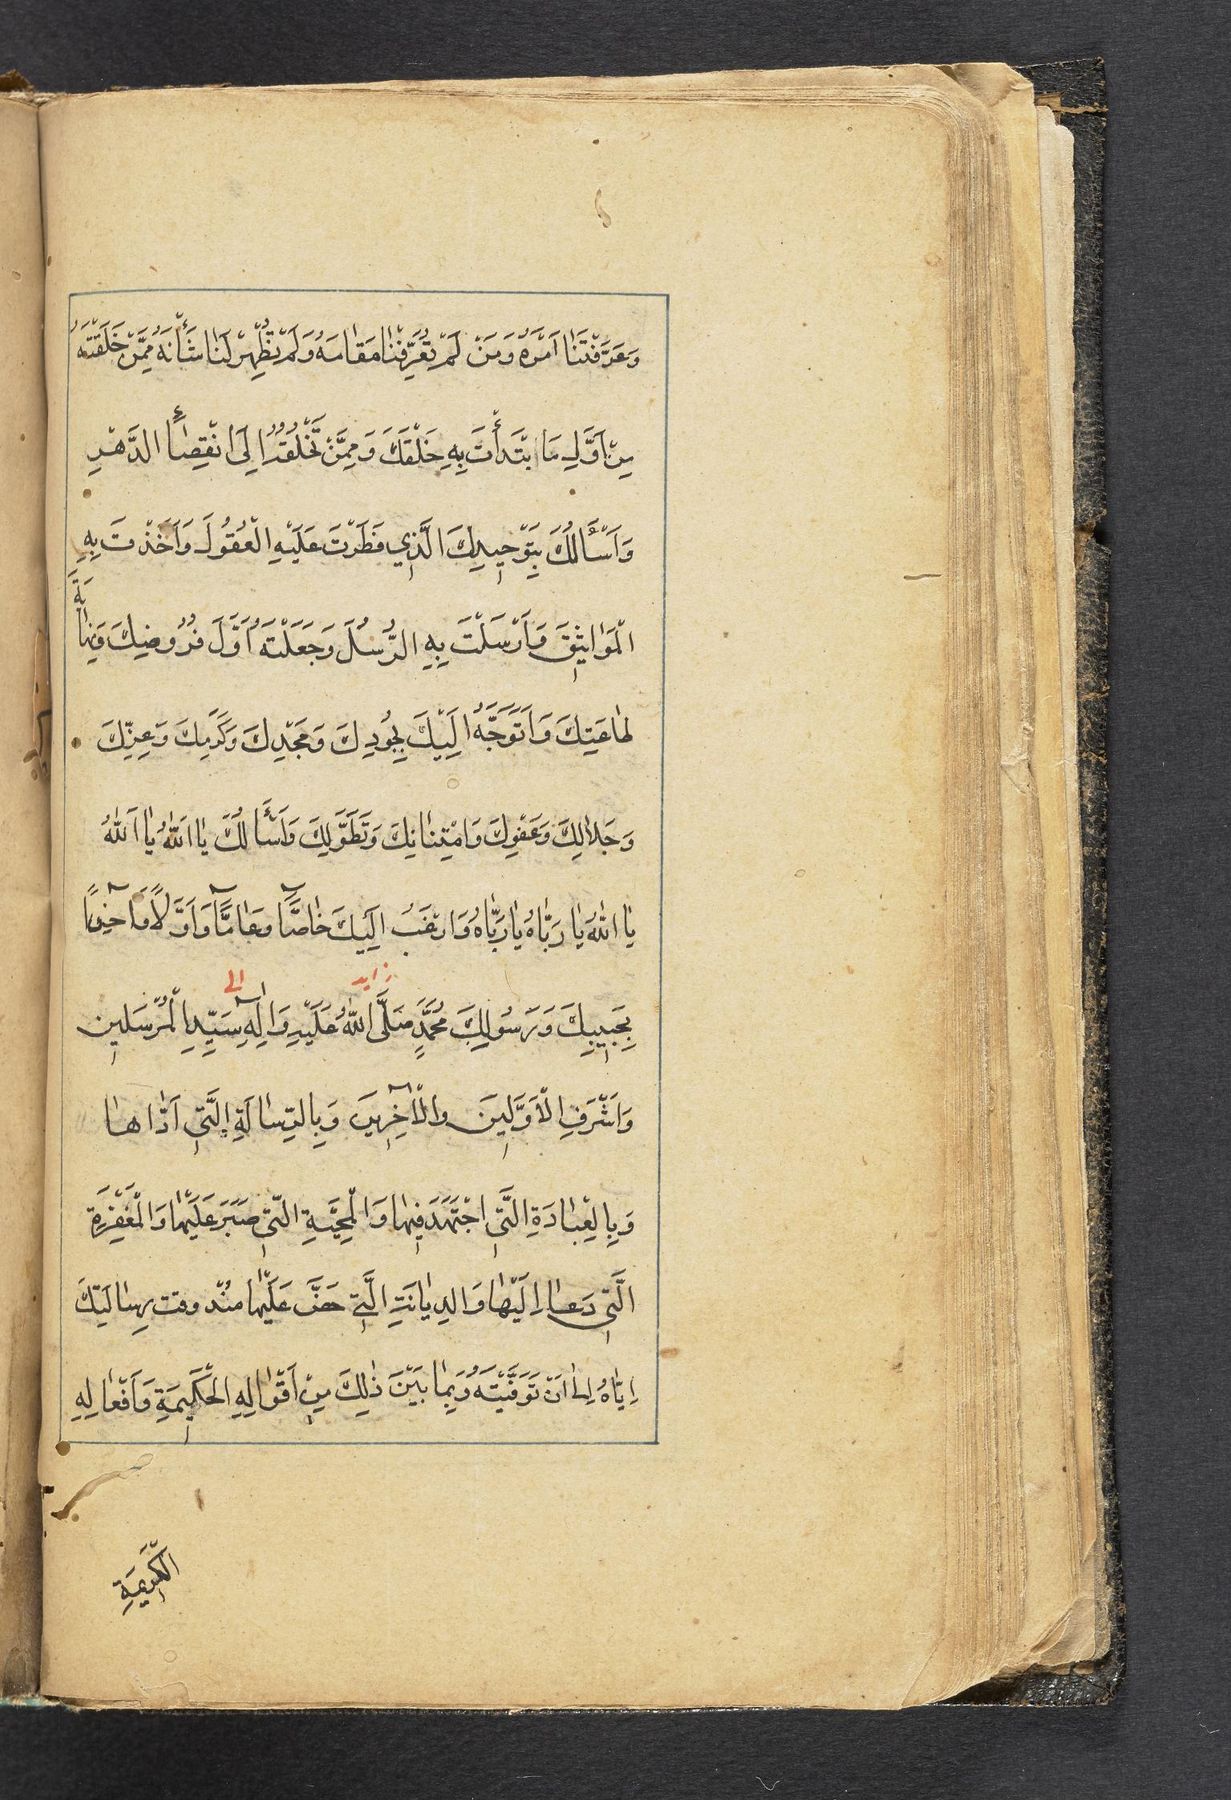 وَعَرَّفْتَنَا اَمْرَهُ وَمَنْ لَمْ تُعَرِّفْنَا مَقَامَهُ وَلَمْ تُظْهِرْ لَنَا شَأْنَهُ مِمَّنْ خَلَقْتَهُ
مِنْ اَوَّلِ مَا ابْتَدَأْتَ بِهِ خَلْقَكَ وَمِمَّنْ تَخْلُقُهُ اِلَى انْقِضَاءِ الدَّهْرِ
وَاَسْأَلُكَ بِتَوْحِيدِكَ الَّذِي فَطَرْتَ عَلَيْهِ الْعُقُولَ وَاَخَذْتَ بِهِ
الْمَوَاثِيقَ وَاَرْسَلْتَ بِهِ الرُّسُلَ وَجَعَلْتَهُ اَوَّلَ فُرُوضِكَ وَنِهَايَةَ
طَاعَتِكَ وَاَتَوَجَّهُ اِلَيْكَ بِجُودِكَ وَمَجْدِكَ وَكَرَمِكَ وَعِزِّكَ
وَجَلَالِكَ وَعَفْوِكَ وَامْتِنَانِكَ وَتَطَوُّلِكَ وَاَسْأَلُكَ يَا اَللّٰهُ يَا اَللّٰهُ
يَا اَللّٰهُ يَا رَبَّاهُ يَا رَبَّاهُ وَارْغَبُ اِلَيْكَ خَاصًّا وَعَامًّا وَاَوَّلًا وَآخِرًا
زايد الى
بِحَبِيبِكَ وَرَسُولِكَ مُحَمَّدٍ صَلَّى اللّٰهُ عَلَيْهِ وَآلِهِ سَيِّدِ الْمُرْسَلِينَ
وَاَشْرَفِ الْاَوَّلِينَ وَالْآخِرِينَ وَبِالرِّسَالَةِ الَّتِي اَدَّاهَا
وَبِالْعِبَادَةِ الَّتِي اجْتَهَدَ فِيهَا وَالْمِحْنَةِ الَّتِي صَبَرَ عَلَيْهَا وَالْمَغْفِرَةِ
الَّتِي دَعَا اِلَيْهَا وَالدِّيَانَتِ الَّتِي حَضَّ عَلَيْهَا مُنْذُ وقت رِسَالَتِكَ
اِيَّاهُ اِلَى اَنْ تَوَفَّيْتَهُ وَبِمَا بَيْنَ ذٰلِكَ مِنْ اَقْوَالِهِ الْحَكِيمَةِ وَاَفْعَالِهِ
الْكَرِيمَةِ